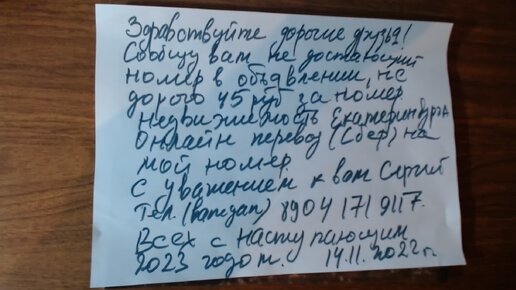 Здравствуйте дорогие друзья!
Сообщу вам не достающий
номер в объявлении, не
дорого 45 руб за номер
недвижимость Екатеринбурга
Онлайн перевод (Сбер) на
мой номер.
С уважением к вам Сергей
тел. (ватцап) 8904 171 9117.
Всех с наступающим
2023 годом. 14.11.2022 г.